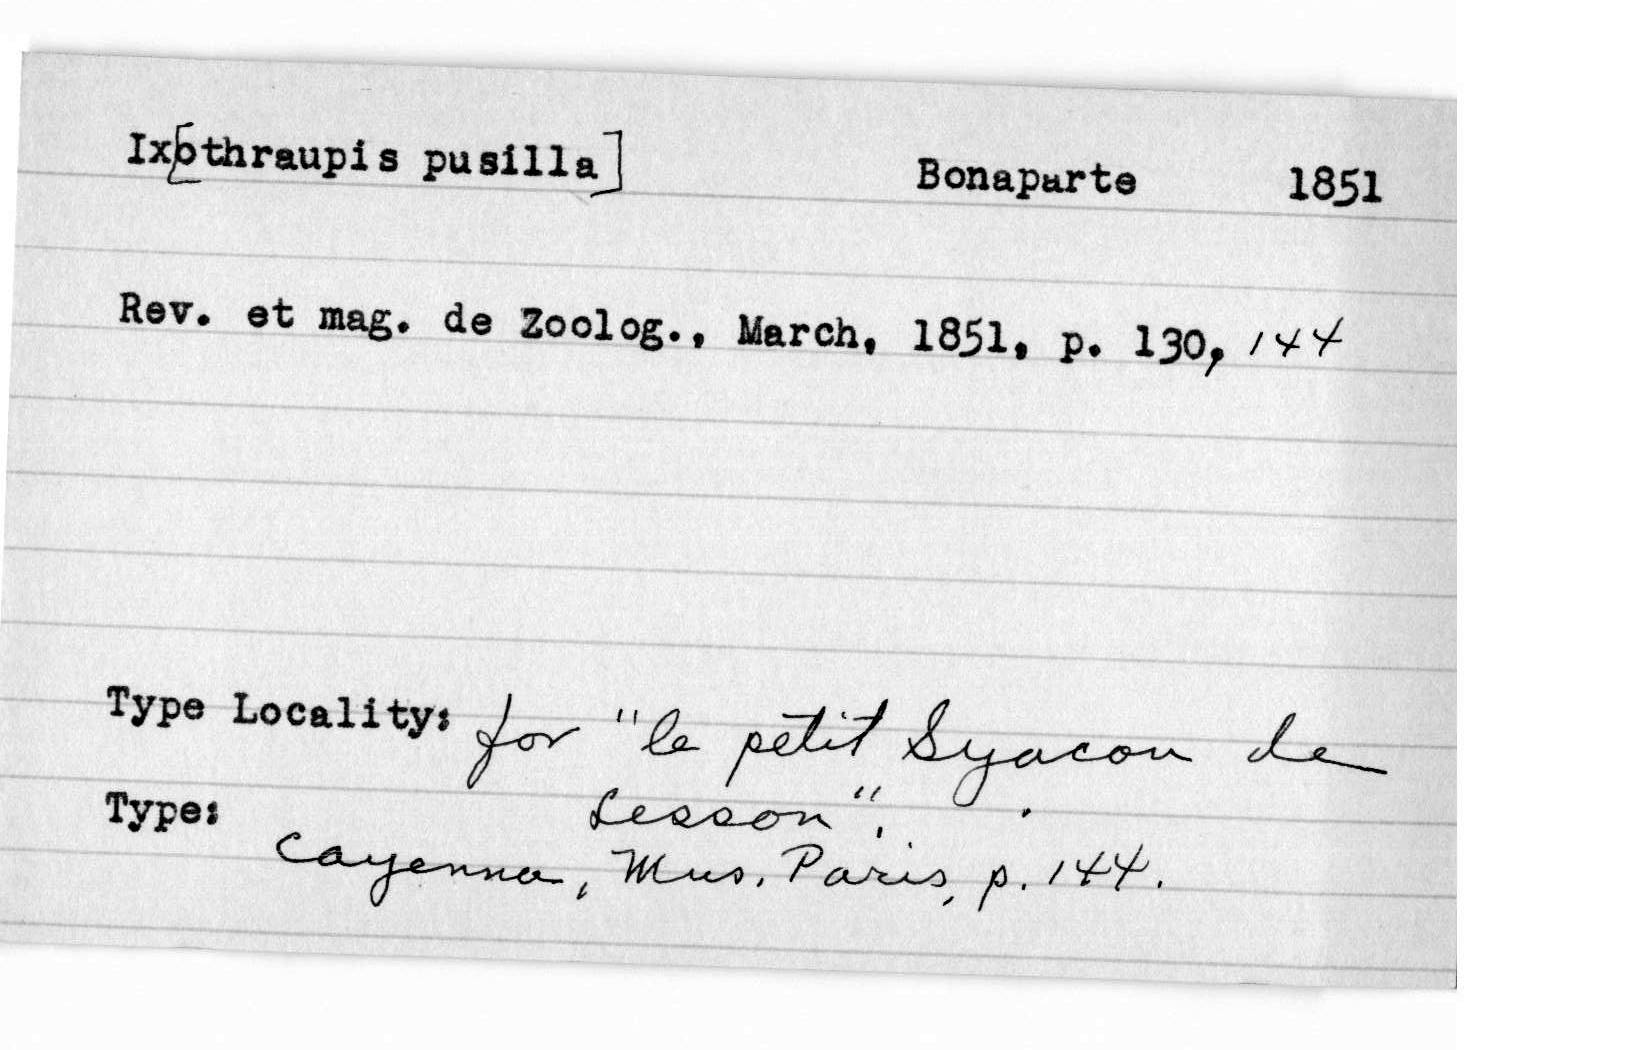 Ix[othraupis pusilla] Bonaparte 1851
Rev. et mag. de Zoolog., March, 1851, p. 130, 144
Type Locality: for "le petit Syacou de
Lesson".
Type:
Cayenna, Mus. Paris, p. 144.